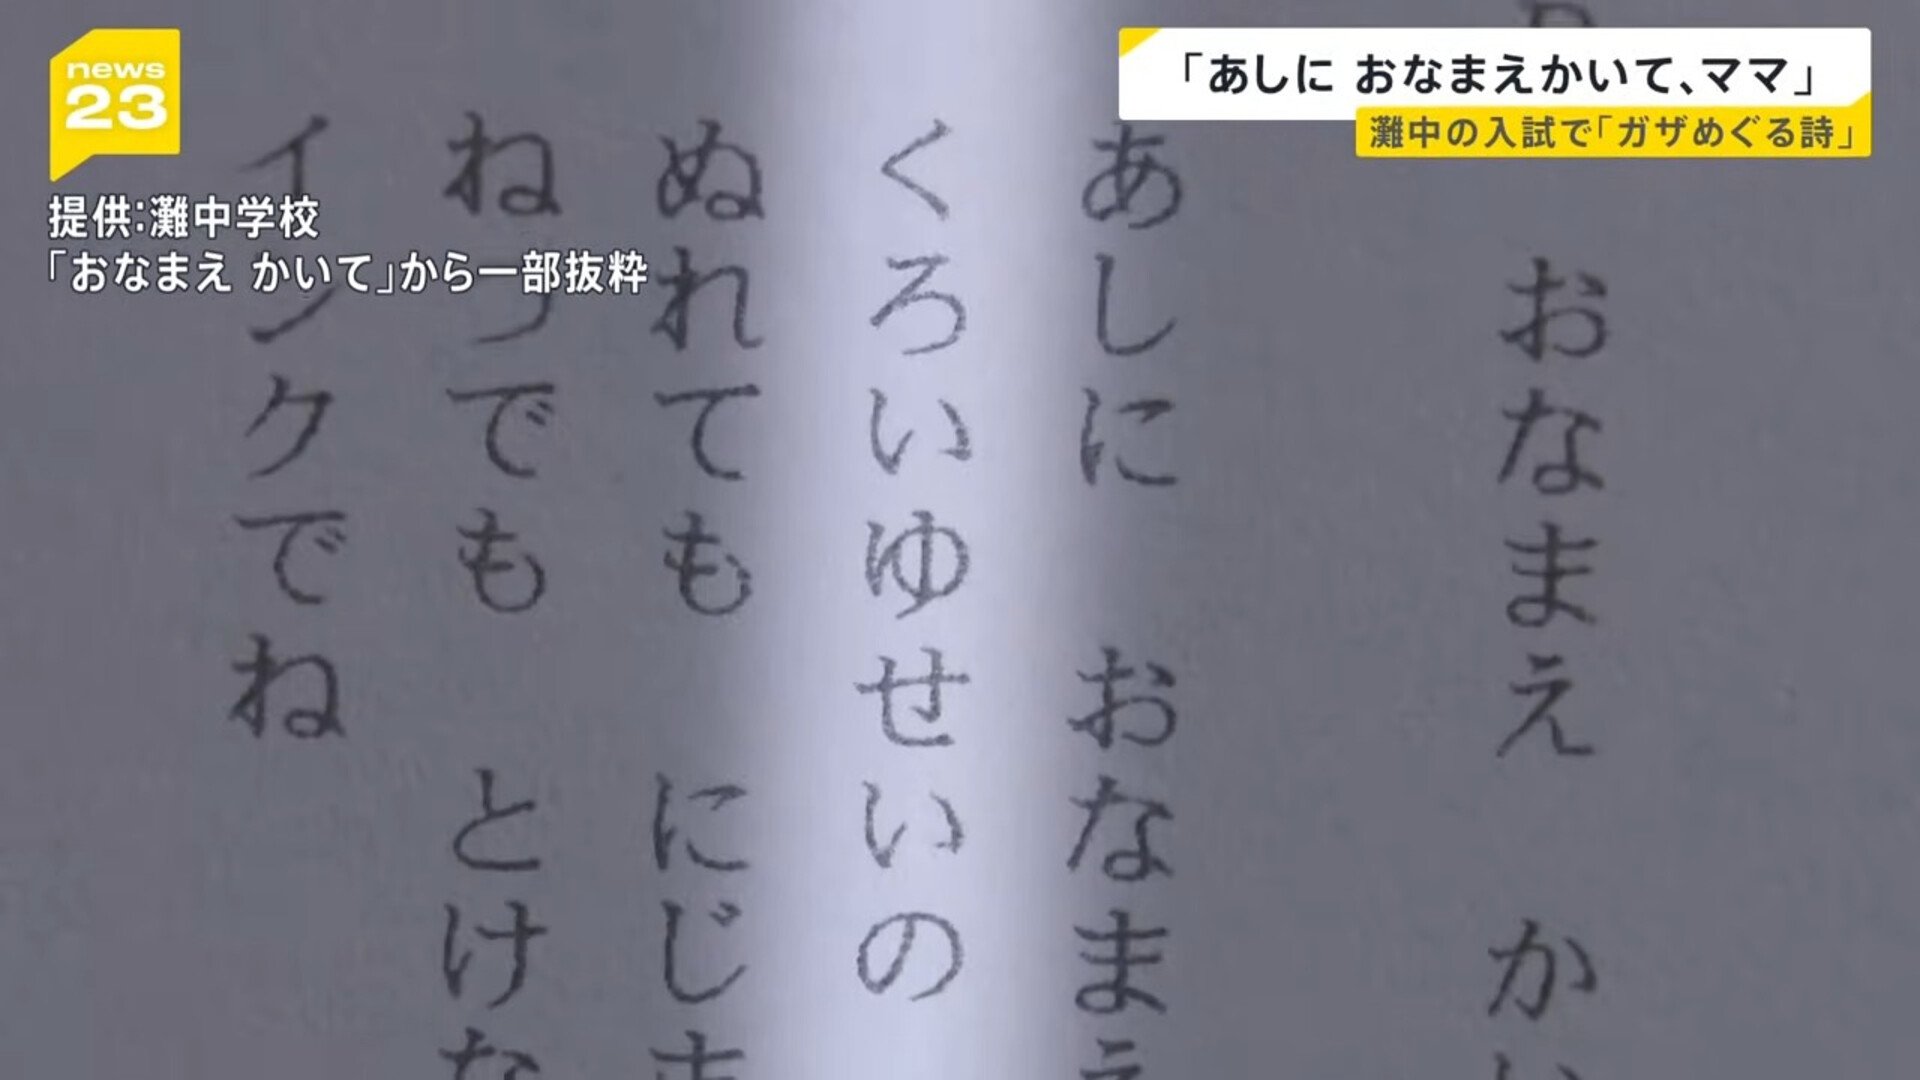 news
23
「あしに おなまえかいて、ママ」
灘中の入試で「ガザめぐる詩」
提供：灘中学校
「おなまえ かいて」から一部抜粋
おなまえ かい
あしに おなまえ
くろいゆせいの
ぬれても にじま
ねつでも とけな
インクでね